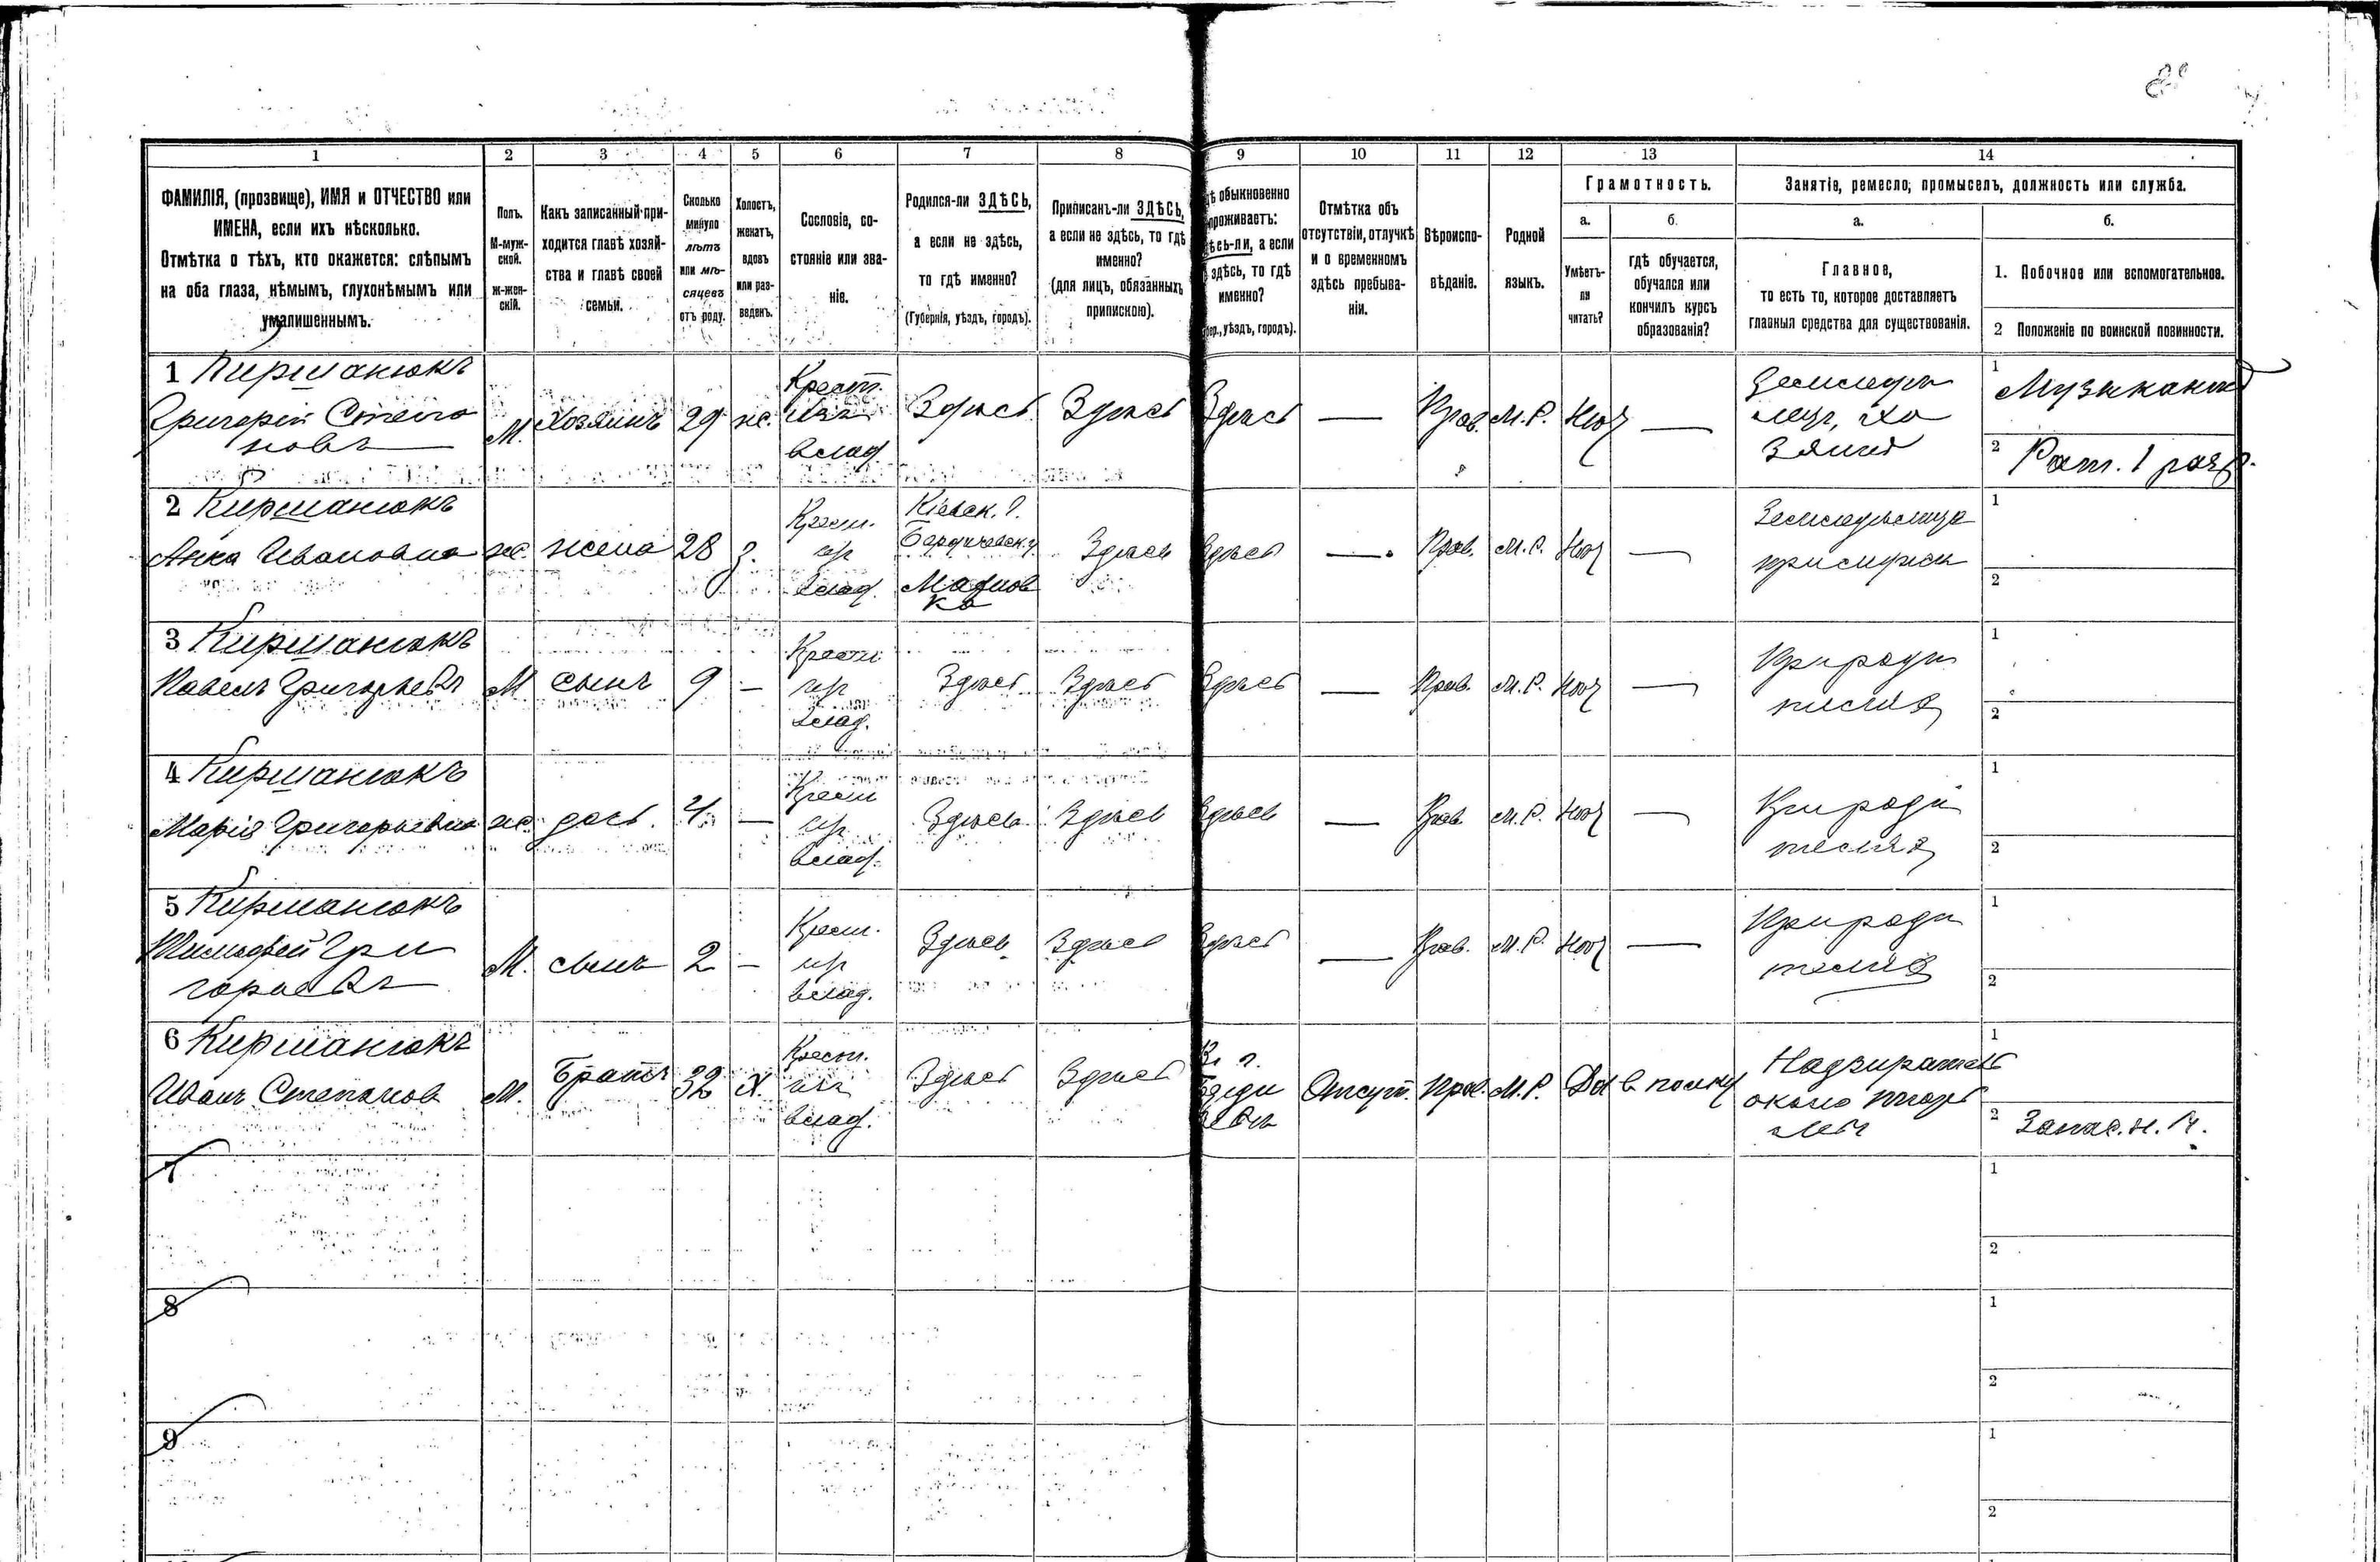 1 2 3 4 5 6 7 8 9 10 11 12 13 14
ФАМИЛІЯ, (прозвище), ИМЯ и ОТЧЕСТВО или
ИМЕНА, если ихъ нѣсколько.
Отмѣтка о тѣхъ, кто окажется: слѣпымъ
на оба глаза, нѣмымъ, глухонѣмымъ или
умалишеннымъ.
Полъ.
М-муж-
ской.
ж-жен-
скій.
Какъ записанный при-
ходится главѣ хозяй-
ства и главѣ своей
семьи.
Сколько
минуло
лѣтъ
или мѣ-
сяцевъ
отъ роду.
Холостъ,
женатъ,
вдовъ
или раз-
веденъ.
Сословіе, со-
стояніе или зва-
ніе.
Родился-ли ЗДѢСЬ,
а если не здѣсь,
то гдѣ именно?
(Губернія, уѣздъ, городъ).
Приписанъ-ли ЗДѢСЬ,
а если не здѣсь, то гдѣ
именно?
(для лицъ, обязанныхъ
припискою).
обыкновенно
проживаетъ:
а если
здѣсь, то гдѣ
именно?
уѣздъ, городъ).
Отмѣтка объ
отсутствіи, отлучкѣ
и о временномъ
здѣсь пребыва-
ніи.
Вѣроиспо-
вѣданіе.
Родной
языкъ.
Грамотность.
а.
Умѣетъ-
ли
читать?
б.
гдѣ обучается,
обучался или
кончилъ курсъ
образованія?
Занятіе, ремесло, промыселъ, должность или служба.
а.
Главное,
то есть то, которое доставляетъ
главныя средства для существованія.
б.
1. Побочное или вспомогательное.
2 Положеніе по воинской повинности.
1 Киршанюкъ
Григорій Степа
новъ
М. Хозяинъ 29 ж.
Крест.
изъ
влад.
Здѣсь Здѣсь Здѣсь — Прав. М.Р. Нѣт —
Земледѣ
лец, хо
зяинъ
1 Музыкантъ
2 Рат. 1 разр.
2 Киршанюкъ
Анна Ивановна ж. жена 28 з.
Крест.
из
влад.
Кіевск. г.
Бердичевск. у
Здѣсь Здѣсь — Прав. М.Р. Нѣт —
Земледѣлица
1
2
3 Киршанюкъ
Павелъ Григорьевъ М сынъ 9 —
Крест.
из
влад.
Здѣсь Здѣсь Здѣсь — Прав. М.Р. Нѣт —
При роди
теляхъ
1
2
4 Киршанюкъ
Марія Григорьевна ж. дочь. 4 —
Крест
из
влад.
Здѣсь Здѣсь Здѣсь — Прав. М.Р. Нѣт —
При роди
теляхъ
1
2
5 Киршанюкъ
Тимофей Гри
горьевъ
М. сынъ 2 —
Крест.
из
влад.
Здѣсь Здѣсь Здѣсь — Прав. М.Р. Нѣт —
При роди
теляхъ
1
2
6 Киршанюкъ
Иванъ Степанов М. Братъ 32 Х.
Крест.
из
влад.
Здѣсь Здѣсь
Отсут. Прав. М.Р. Да в полку
Надзиратель
около
1
2 Запас. н. ч.
7
1
2
8
1
2
9
1
2